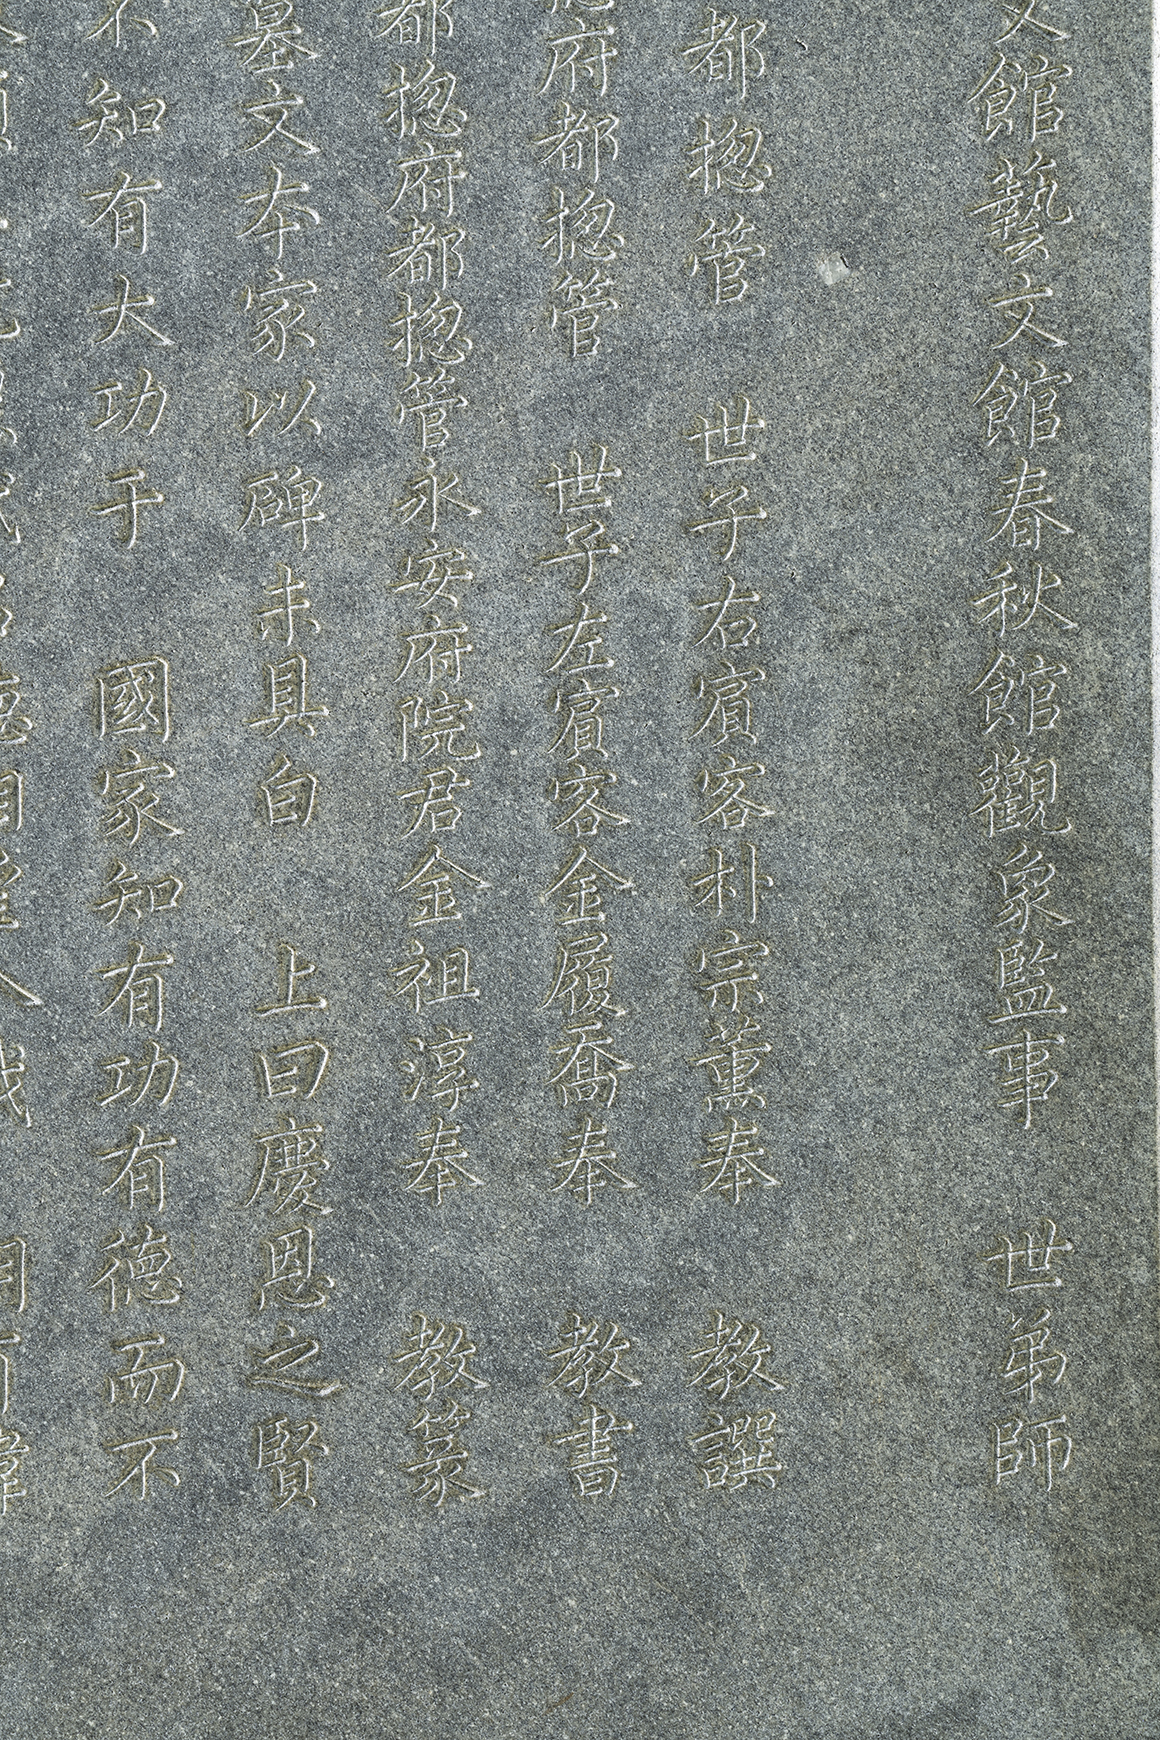 文館藝文館春秋館觀象監事 世弟師
都揔管 世子右賓客朴宗薰奉 教譔
府都揔管 世子左賓客金履喬奉 教書
都揔府都揔管永安府院君金祖淳奉 教篆
墓文本家以碑未具自 上曰慶恩之賢
不知有大功于 國家知有功有德而不